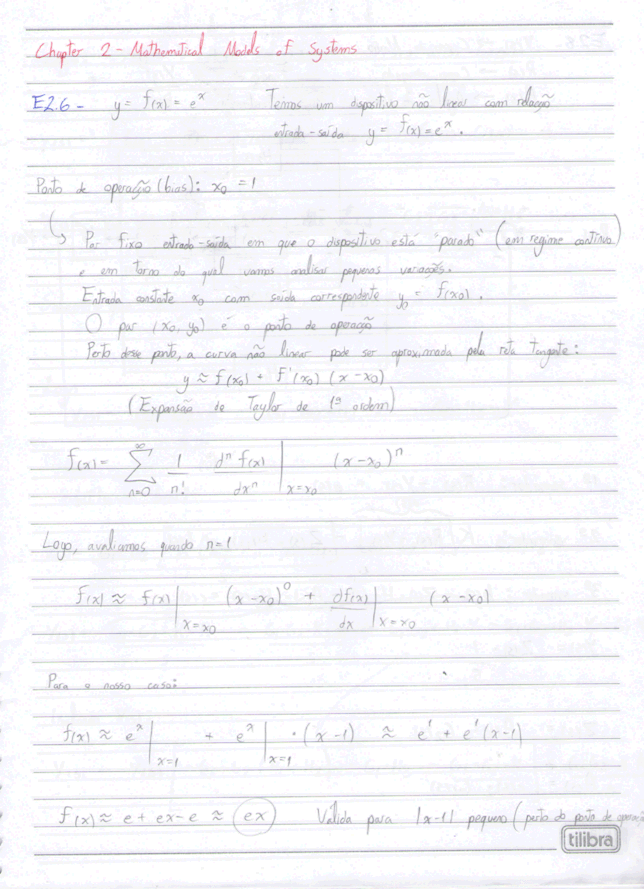 Chapter 2 - Mathematical Models of Systems
E2.6 - y = f(x) = e^x Temos um dispositivo não linear com relação
entrada-saída y = f(x) = e^x.
Ponto de operação (bias): x₀ = 1
↳ Par fixo entrada-saída em que o dispositivo está "parado" (em regime contínuo)
e em torno do qual vamos analisar pequenas variações.
Entrada constante x₀ com saída correspondente y₀ = f(x₀).
O par (x₀, y₀) é o ponto de operação
Perto desse ponto, a curva não linear pode ser aproximada pela reta tangente:
y ≈ f(x₀) + f'(x₀) (x - x₀)
(Expansão de Taylor de 1ª ordem)
f(x) = ∑_{n=0}^{∞} 1/n! d^n f(x)/dx^n |_{x=x₀} (x - x₀)^n
Logo, avaliamos quando n=1
f(x) ≈ f(x)|_{x=x₀} (x - x₀)^0 + df(x)/dx |_{x=x₀} (x - x₀)
Para o nosso caso:
f(x) ≈ e^x |_{x=1} + e^x |_{x=1} · (x - 1) ≈ e^1 + e^1 (x - 1)
f(x) ≈ e + ex - e ≈ ex Válida para |x-1| pequeno (perto do ponto de
tilibra